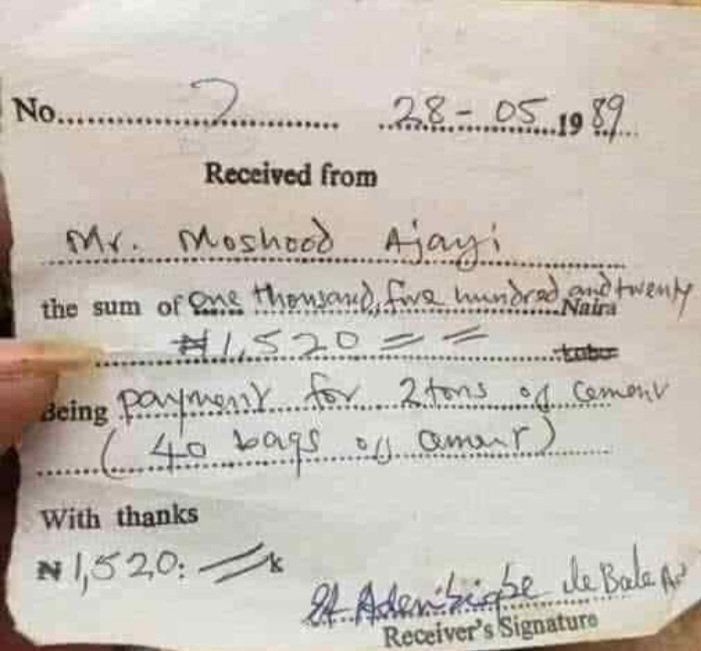 No. 2 28-05 1989
Received from
Mr. Moshood Ajayi
the sum of One thousand, five hundred and twenty Naira
₦1,520 = =
Being payment for 2 tons of cement
(40 bags of cement)
With thanks
₦1,520: = k
Ile Bale
Receiver's Signature